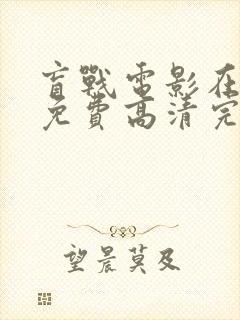 盲戰電影在
免費高清完
望晨莫及